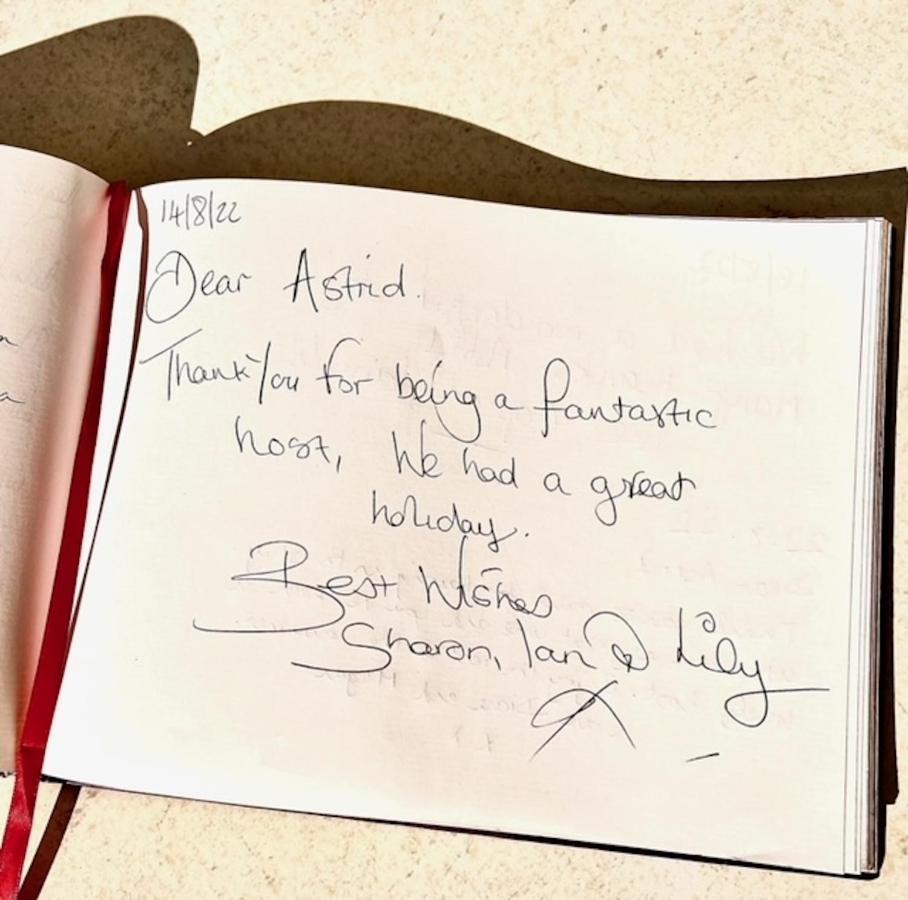 14/8/22
Dear Astrid.
Thank You for being a fantastic
host, We had a great
holiday.
Best Wishes
Sharon, Ian & Lily
X